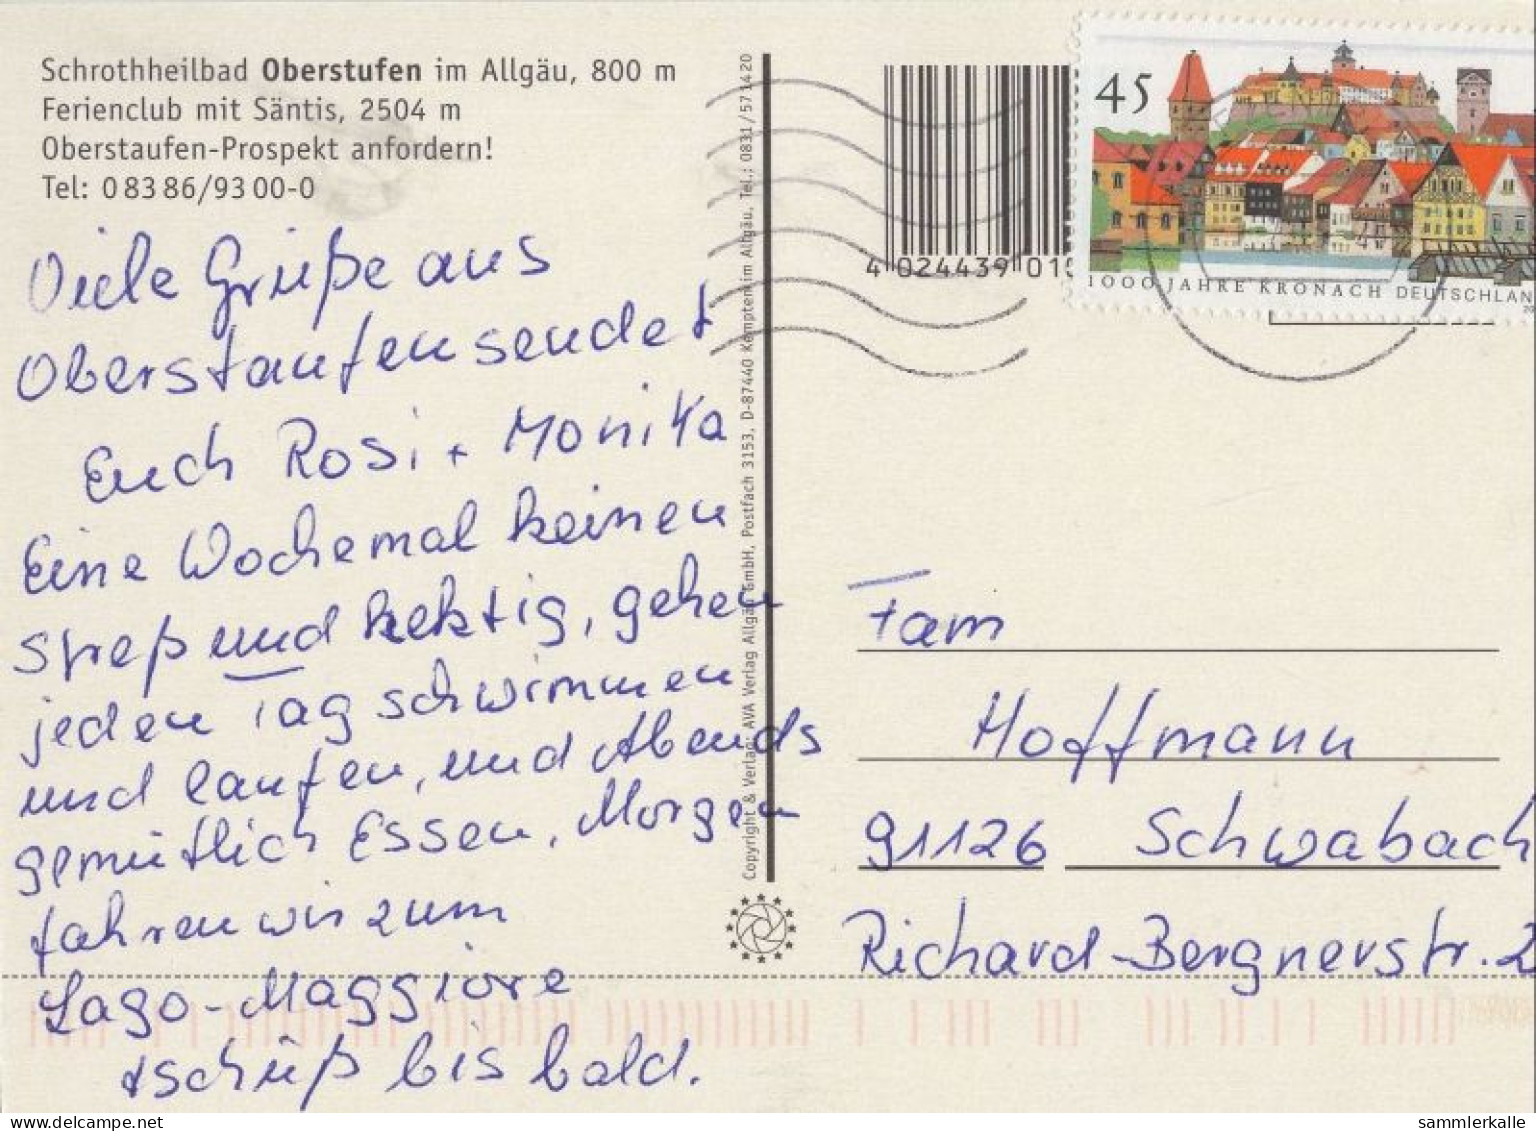 Schrothheilbad Oberstufen im Allgäu, 800 m
Ferienclub mit Säntis, 2504 m
Oberstaufen-Prospekt anfordern!
Tel: 0 83 86/93 00-0
Viele Grüße aus
Oberstaufen sendet
Euch Rosi + Monika
Eine Woche mal keinen
streß und hektig, gehen
jeden Tag schwimmen
und laufen, und Abends
gemütlich Essen, Morgen
fahren wir zum
Lago-Maggiore
tschüß bis bald.
Copyright & Verlag: AVA Verlag Allgäu GmbH, Postfach 3153, D-87440 Kempten im Allgäu, Tel.: 0831/57 14 20
4 024439 01
45
1000 JAHRE KRONACH DEUTSCHLAN
Fam
Hoffmann
91126 Schwabach
Richard-Bergnerstr. 2
delcampe.net
sammlerkalle